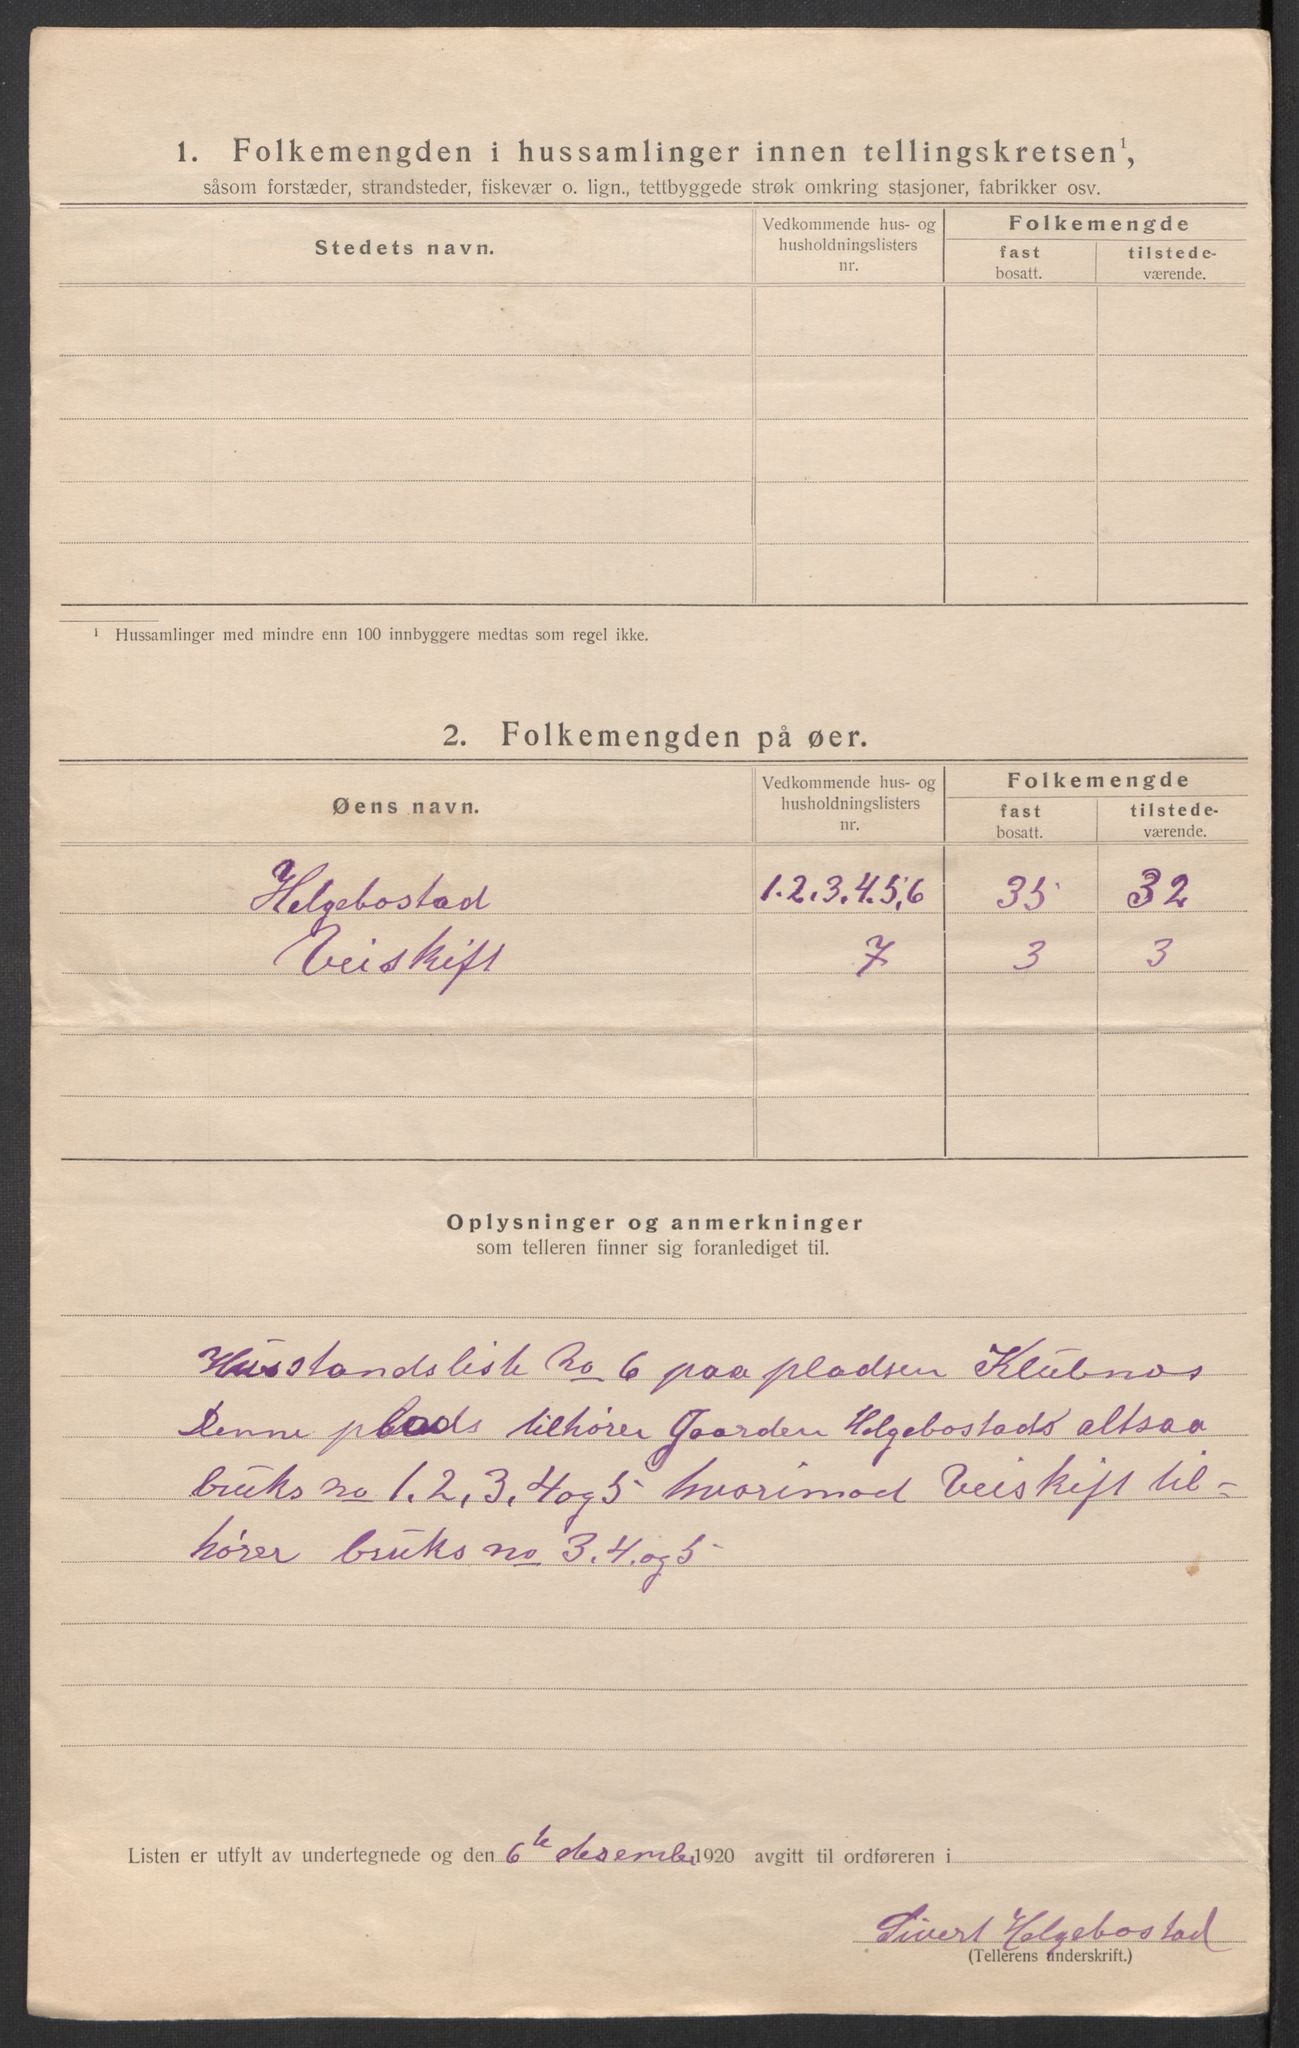 1. Folkemengden i hussamlinger innen tellingskretsen¹,
såsom forstæder, strandsteder, fiskevær o. lign., tettbyggede strøk omkring stasjoner, fabrikker osv.
Stedets navn.
Vedkommende hus- og
husholdningslisters
nr.
Folkemengde
fast
bosatt.
tilstede-
værende.
¹ Hussamlinger med mindre enn 100 innbyggere medtas som regel ikke.
2. Folkemengden på øer.
Øens navn.
Vedkommende hus- og
husholdningslisters
nr.
Folkemengde
fast
bosatt.
tilstede-
værende.
Helgebostad 1.2.3.4.5,6 35 32
Veiskift 7 3 3
Oplysninger og anmerkninger
som telleren finner sig foranlediget til.
Husstandsliste No 6 paa pladsen Klubnas
Denne plads tilhører Gaarden Helgebostads altsaa
bruks no 1.2,3,4og5 hvorimod Veiskift til-
hører bruks no 3.4.og5
Listen er utfylt av undertegnede og den 6te desember 1920 avgitt til ordføreren i
Sivert Helgebostad
(Tellerens underskrift.)